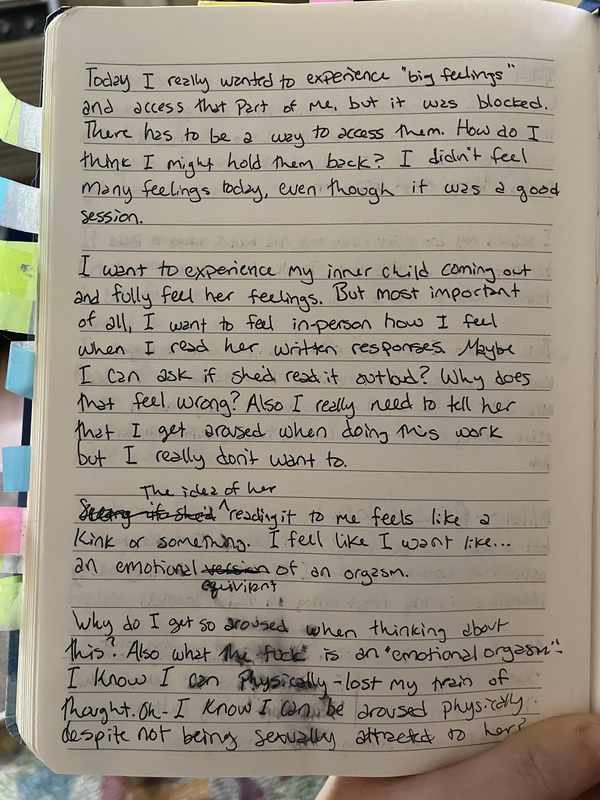 Today I really wanted to experience "big feelings"
and access that part of me, but it was blocked.
There has to be a way to access them. How do I
think I might hold them back? I didn't feel
many feelings today, even though it was a good
session.
I want to experience my inner child coming out
and fully feel her feelings. But most important
of all, I want to feel in-person how I feel
when I read her written responses. Maybe
I can ask if she'd read it outloud? Why does
that feel wrong? Also I really need to tell her
that I get aroused when doing this work
but I really don't want to.
The idea of her
reading it to me feels like a
kink or something. I feel like I want like...
an emotional version of an orgasm.
equivilent
Why do I get so aroused when thinking about
this? Also what the fuck is an "emotional orgasm"-
I know I can physically - lost my train of
thought. Oh - I know I can be aroused physically
despite not being sexually attracted to her?